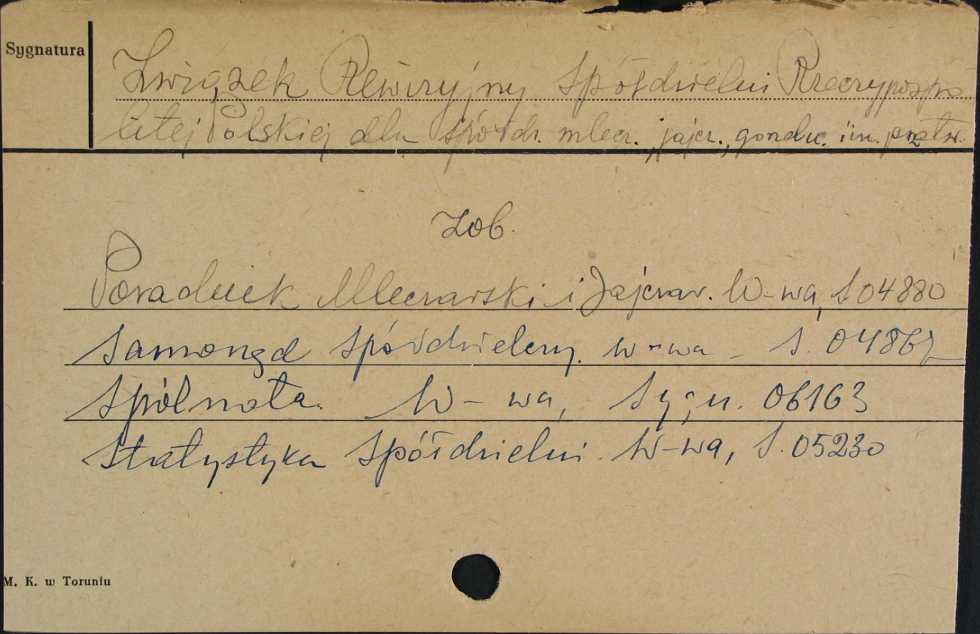 Sygnatura
Związek Rewizyjny Spółdzielni Rzeczypospo
litej Polskiej dla spółdz. mlecz., jajcz., gorzelń. i in.
Zob.
Poradnik Mleczarski i Jajczar. W-wa, S 04880
Samorząd Spółdzielczy. W-wa - S. 04867
Spólnota. W-wa, Sygn. 06163
Statystyka Spółdzielni. W-wa, S. 05230
M. K. w Toruniu